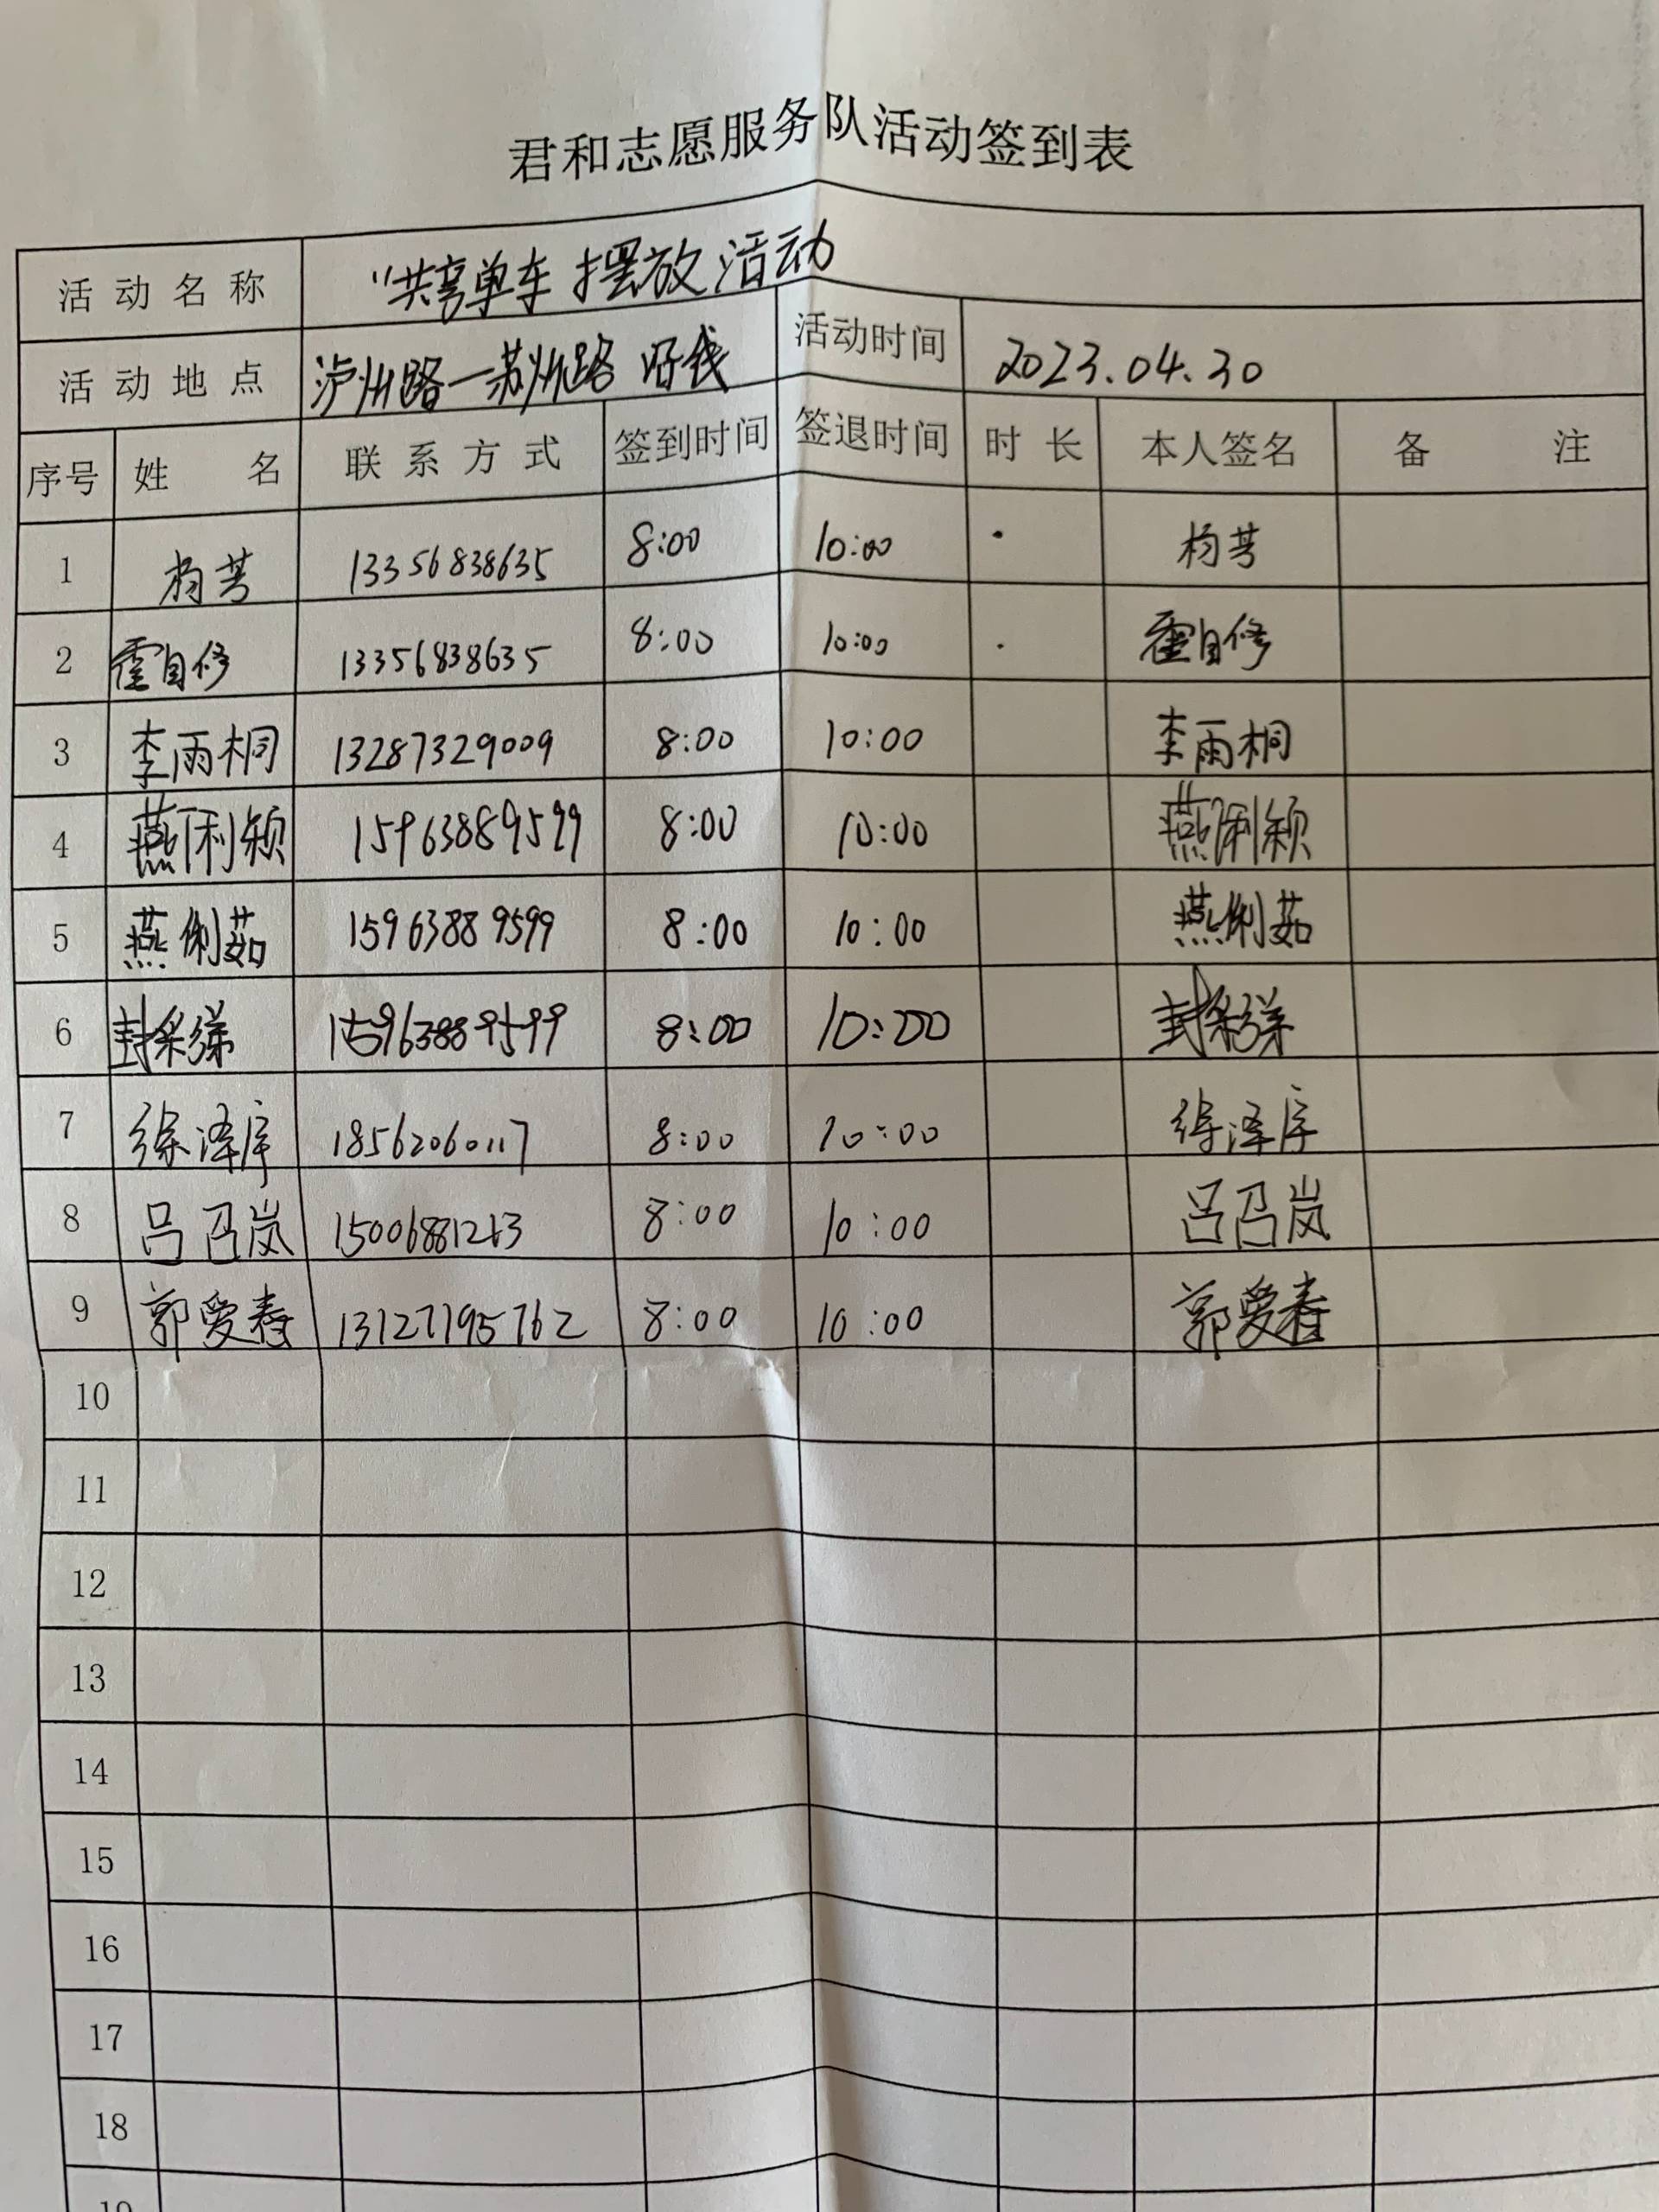 君和志愿服务队活动签到表
活动名称 “共享单车摆放活动
活动地点 泸州路一苏州路 沿线 活动时间 2023.04.30
序号 姓名 联系方式 签到时间 签退时间 时长 本人签名 备注
1 杨芸 13356838635 8:00 10:00 杨芸
2 霍自修 13356838635 8:00 10:00 霍自修
3 李雨桐 13287329009 8:00 10:00 李雨桐
4 燕俐颖 15963889599 8:00 10:00 燕俐颖
5 燕俐茹 15963889599 8:00 10:00 燕俐茹
6 15963889599 8:00 10:00
7 徐泽序 18562060117 8:00 10:00 徐泽序
8 吕召岚 8:00 10:00 吕召岚
9 郭爱春 13127195762 8:00 10:00 郭爱春
10
11
12
13
14
15
16
17
18
19